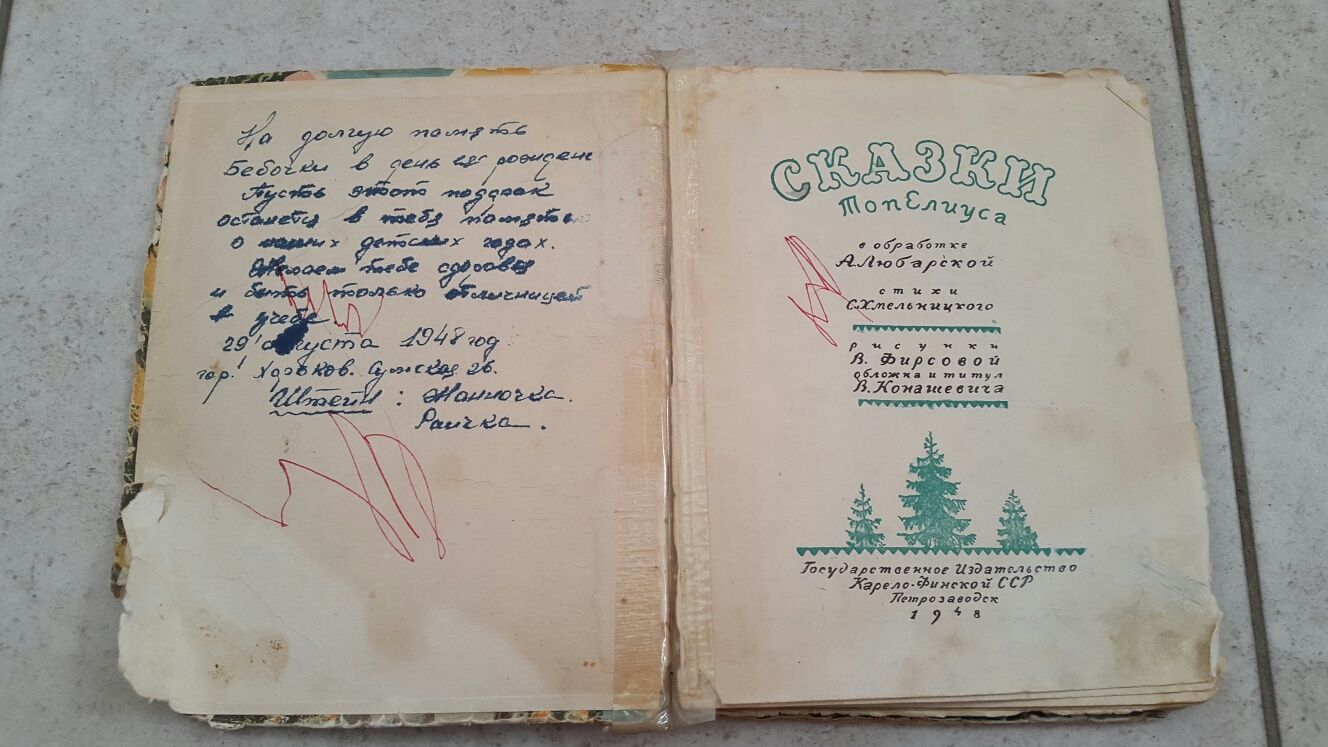 На долгую память
Бебочки в день её рожден
Пусть этот подарок
останется в тебя память
о наших детских годах.
Желаем тебе здоровья
и быть только отличницей
в учёбе
29 августа 1948 год.
гор. Харьков. Сумская 26.
Штейн: Жанночка.
Раичка.
СКАЗКИ
ТопЕлиуса
в обработке
А.Любарской
стихи
С.Хмельницкого
рисунки
В. Фирсовой
обложка и титул
В. Конашевича
Государственное Издательство
Карело-Финской ССР
Петрозаводск
1948